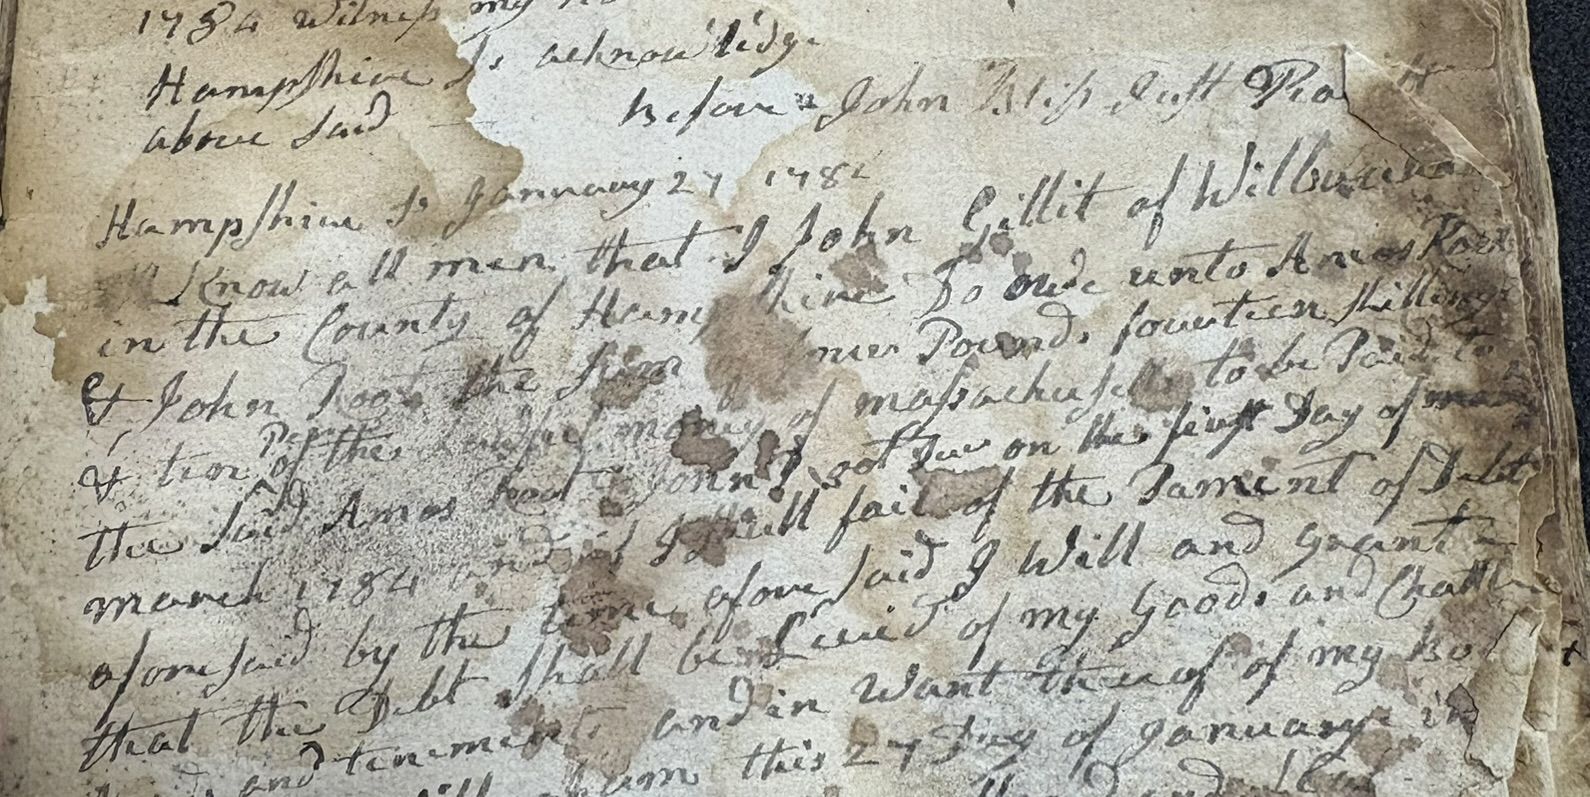 1784 Witness my
Hampshire Ss acknowlidge
above said
Before John Bliss Just Pea
Hampshire Ss January 27 178
Know all men that I John Gillit of Wilbraham
in the County of Hampshire Do owe unto Amos Root
& John Root the sum nine Pounds fourteen shillings
& ten Pence of the lawful money of massachusetts to be Paid to
the said Amos Root & John Root Jur on the first Day of
march 1784 and if I shall fail of the Pament of Debt
aforesaid by the time afore said I Will and grant
that the Debt shall be Levied of my Goods and Chattle
and tenements and in Want thereof of my Bod
this 27 Day of January in